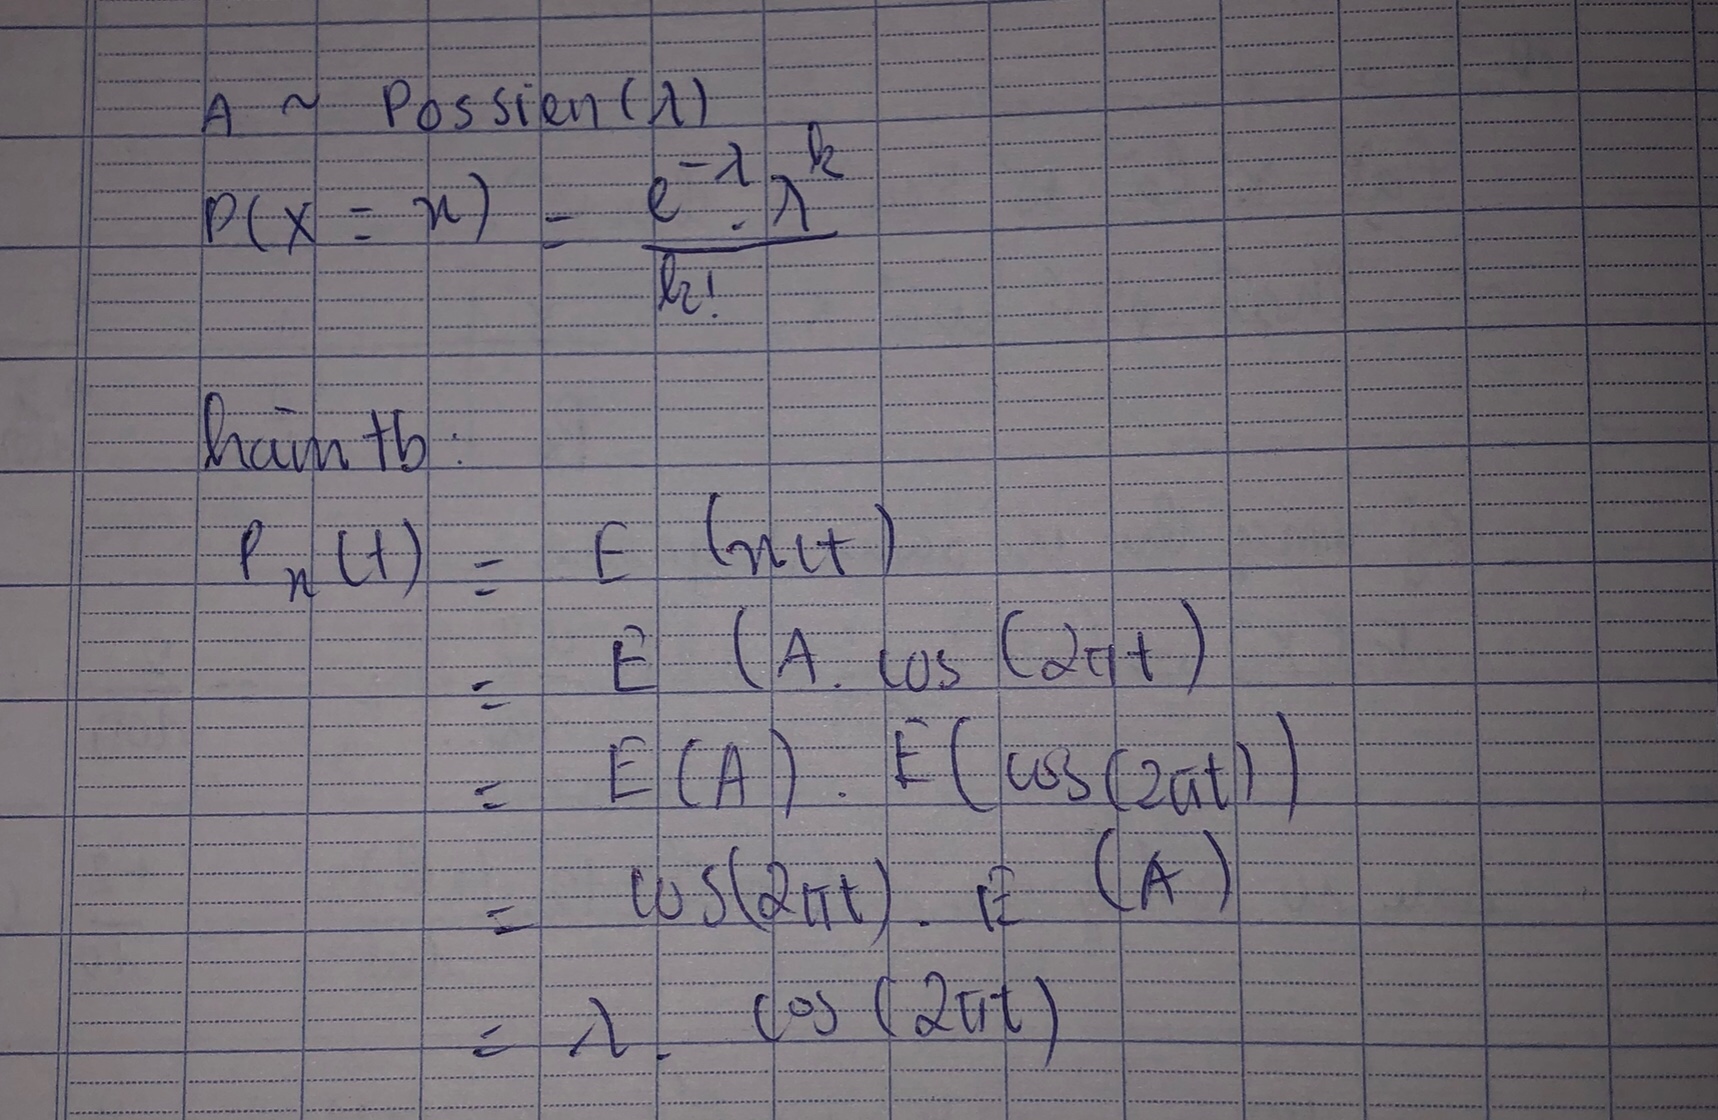 A ~ Possien(λ)
P(X = x) = e^-λ . λ^k / k!
hàm tb:
P_x(t) = E (x(t)
= E (A. cos (2πt)
= E(A) . E(cos(2πt))
= cos(2πt) . E (A)
= λ . cos (2πt)